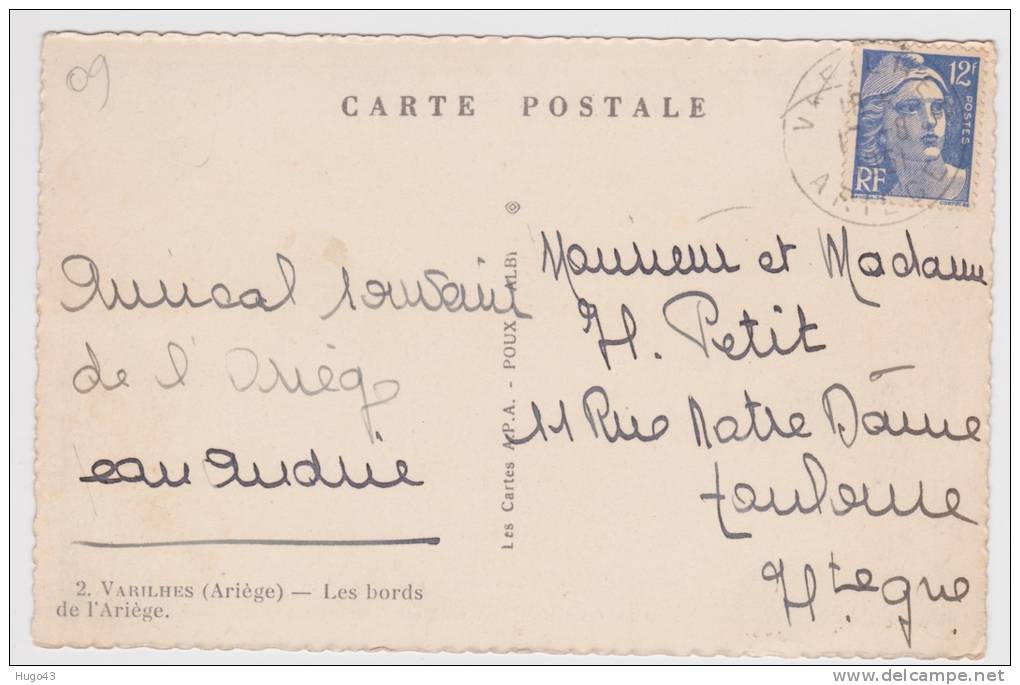 09
CARTE POSTALE
12F
POSTES
RF
ARIEGE
Amical souvenir
de l'Ariège
Jean Andrie
Monsieur et Madame
H. Petit
11 Rue Notre Dâme
Toulouse
Hte Gne
Les Cartes A.P.A. - POUX ALBI
2. VARILHES (Ariège) — Les bords
de l'Ariège.
Hugo43
delcampe.net